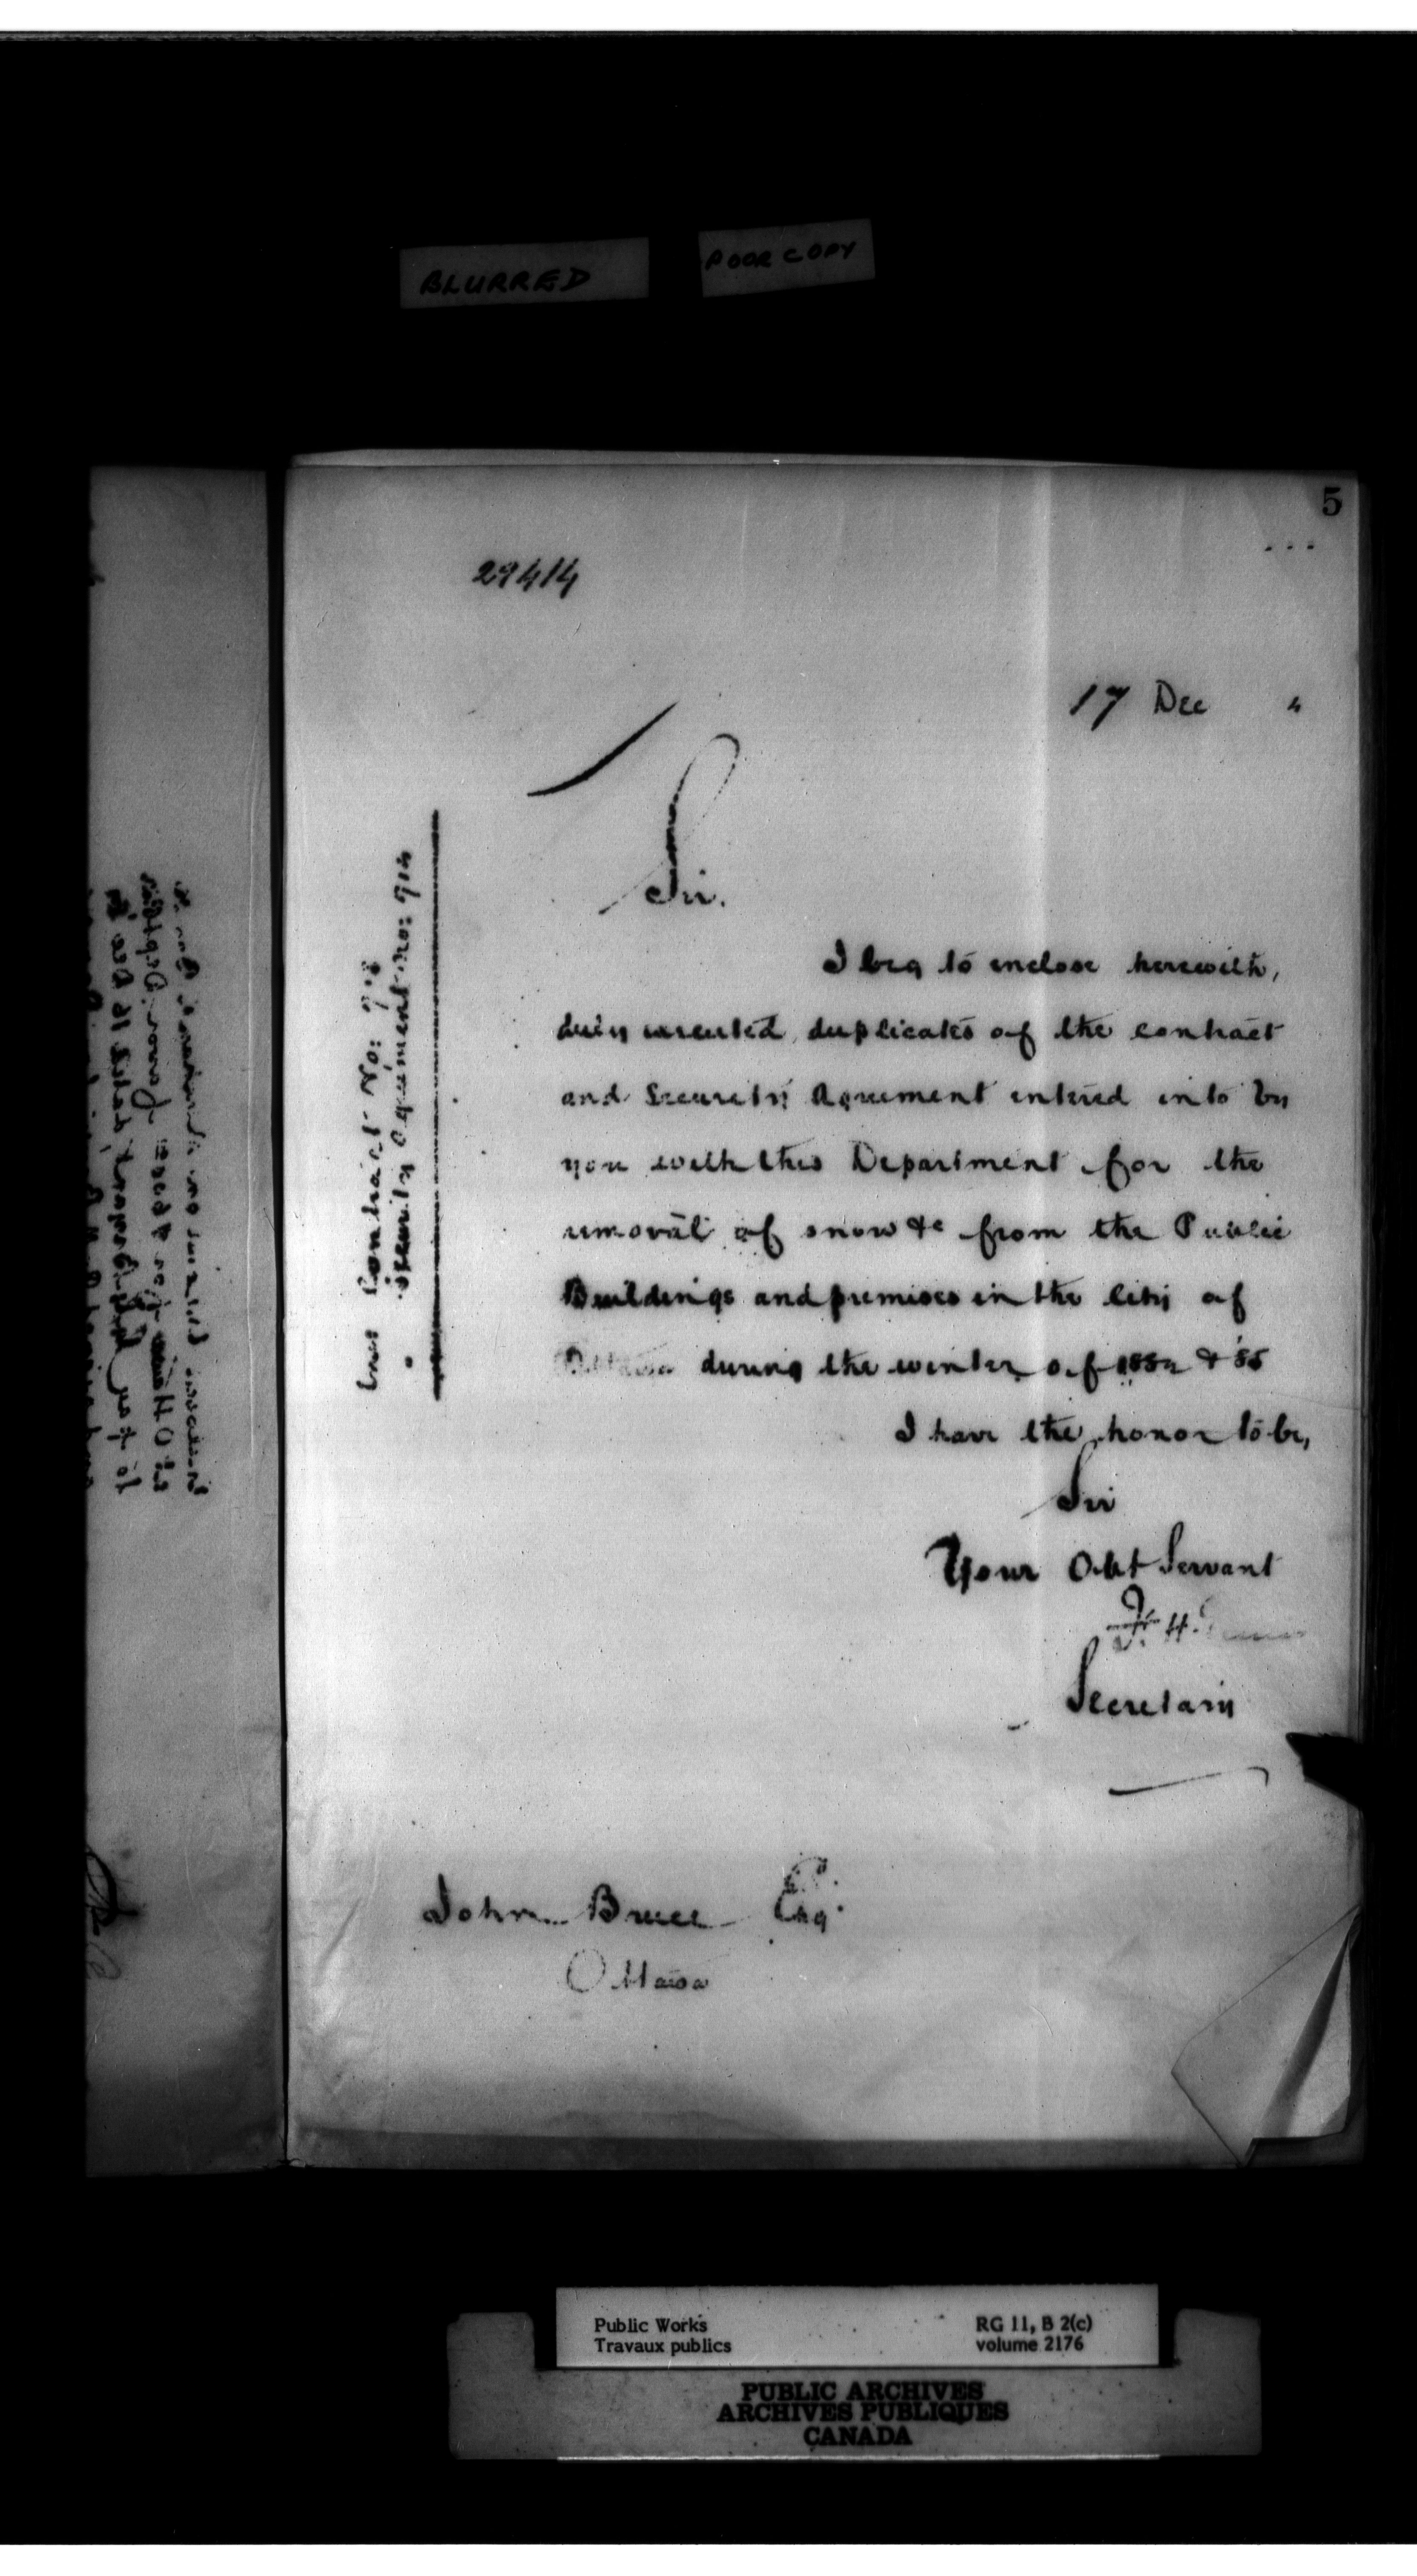 BLURRED
POOR COPY
5
29414
17 Dec 4
Sir.
I beg to enclose herewith,
duly executed, duplicates of the contract
and Security Agreement entered into by
you with this Department for the
removal of snow &c from the Public
Buildings and premises in the City of
Ottawa during the winter of 1884 & '85
I have the honor to be,
Sir
Your Obt Servant
F. H.
Secretary
Encs Contract No:
Security Agreement no: 714
John Bruce Esq.
Ottawa
Public Works
Travaux publics
RG 11, B 2(c)
volume 2176
PUBLIC ARCHIVES
ARCHIVES PUBLIQUES
CANADA